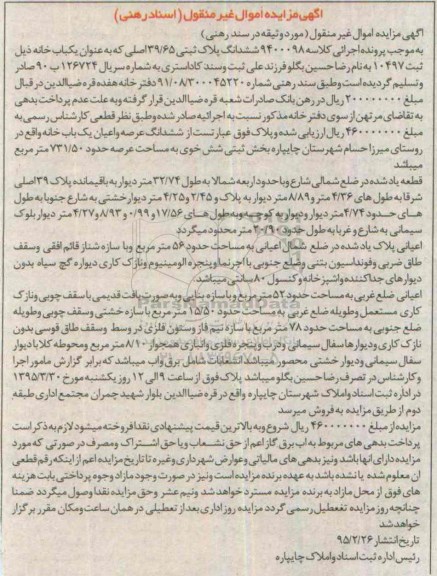 آگهی مزایده اموال غیر منقول (اسناد رهنی)
آگهی مزایده اموال غیر منقول (مورد وثیقه در سند رهنی)
به موجب پرونده اجرائی کلاسه ۹۴۰۰۰۹۸ ششدانگ پلاک ثبتی ۳۹/۶۵ اصلی که به عنوان یکباب خانه ذیل
ثبت ۱۰۴۹۷ به نام رضا حسین بگلو فرزند علی ثبت وسند کاداستری به شماره سریال ۱۲۶۷۲۴ ب ۹۰ صادر
وتسلیم گردیده است وطبق سند رهنی شماره ۴۵۲۲۰-۹۱/۰۸/۳۰ دفتر خانه هفده قره ضیاالدین در قبال
مبلغ ۲۰۰۰۰۰۰۰۰ ریال در رهن بانک صادرات شعبه قره ضیاالدین قرار گرفته وبه علت عدم پرداخت بدهی
به تقاضای مرتهن از سوی دفتر خانه مذکور نسبت به اجرائیه صادر شده وطبق نظر قطعی کارشناس رسمی به
مبلغ ۴۶۰۰۰۰۰۰۰ ریال ارزیابی شده و پلاک فوق عبارتست از ششدانگ عرصه واعیان یک باب خانه واقع در
روستای میرزا حسام شهرستان چایپاره بخش ثبتی شش خوی به مساحت عرصه حدود ۷۳۱/۵۰ متر مربع
میباشد
قطعه یاد شده در ضلع شمالی شارع وبا حدود اربعه شمالا به طول ۳۲/۷۴ متر دیوار به باقیمانده پلاک ۳۹ اصلی
شرقا به طول های ۴/۳۶ متر و ۸/۸۹ متر دیوار به پلاک و ۲/۴۵ و ۴/۲۵ متر دیوار خشتی به شارع جنوبا به طول
های حدود ۴/۷۴ متر دیوار ودیوار به کوچه وبه طول های ۱۷/۵۶ و ۰/۹۹ و ۸/۹۳ و ۴/۲۷ متر دیوار بلوک
سیمانی به شارع و غربا به طول حدود ۳۰/۹۰ متر محدود میگردد
اعیانی پلاک یاد شده در ضلع شمال اعیانی به مساحت حدود ۵۶ متر مربع وبا سازه شناژ قائم افقی وسقف
طاق ضربی وفونداسیون بتنی وضلع جنوبی با آجرنما وپنجره آلومینیوم ونازک کاری دیواره گچ سیاه بدون
دیوارهای جداکننده واشپزخانه وکنسول ۸۰ سانتی میباشد
اعیانی ضلع غربی به مساحت حدود ۵۲ متر مربع وبا سازه بنایی وبه صورت بافت قدیمی با سقف چوبی ونازک
کاری مستعمل وطویله ضلع غربی به مساحت حدود ۱۵/۵۰ متر مربع با سازه خشتی وسقف چوبی وطویله
ضلع جنوبی به مساحت حدود ۷۸ متر مربع با سازه نیم فاز وستون فلزی در وسط وسقف طاق قوسی بدون
نازک کاری ودیوارها سفال سیمانی ودرب وپنجره فلزی وانباری همجوار ۸/۱۰ متر مربع ومحوطه کلا با دیوار
سفال سیمانی ودیوار خشتی محصور میباشد انشعابات شامل برق واب میباشد که برابر گزارش مامور اجرا
و کارشناس در تصرف رضا حسین بگلو میباشد پلاک فوق از ساعت ۹ الی ۱۲ روز یکشنبه مورخ ۱۳۹۵/۳/۳۰
در اداره ثبت اسناد واملاک شهرستان چایپاره واقع در قره ضیاالدین بلوار شهید چمران مجتمع اداری طبقه
دوم از طریق مزایده به فروش میرسد
مزایده از مبلغ ۴۶۰۰۰۰۰۰۰ ریال شروع و به بالاترین قیمت پیشنهادی نقدا فروخته میشود لازم به ذکر است
پرداخت بدهی های مربوط به اب برق گاز اعم از حق نشعاب ویا حق اشتراک ومصرف در صورتی که مورد
مزایده دارای انها باشد ونیز بدهی های مالیاتی وعوارض شهرداری وغیره تا تاریخ مزایده اعم از اینکه رقم قطعی
ان معلوم شده یا نشده باشد به عهده برنده مزایده است ونیز در صورت وجود مازاد وجوه پرداختی بابت هزینه
های فوق از محل مازاد به برنده مزایده مسترد خواهد شد ونیم عشر وحق مزایده نقدا وصول میگردد ضمنا
چنانچه روز مزایده تعطیل رسمی گردد مزایده روز اداری بعد از تعطیلی در همان ساعت ومکان مقرر برگزار
خواهد شد
تاریخ انتشار ۹۵/۲/۲۶
رئیس اداره ثبت اسناد واملاک چایپاره